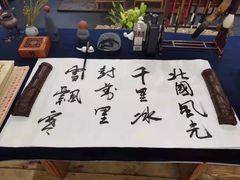 北國風光
千里冰
封萬里
雪飄寒